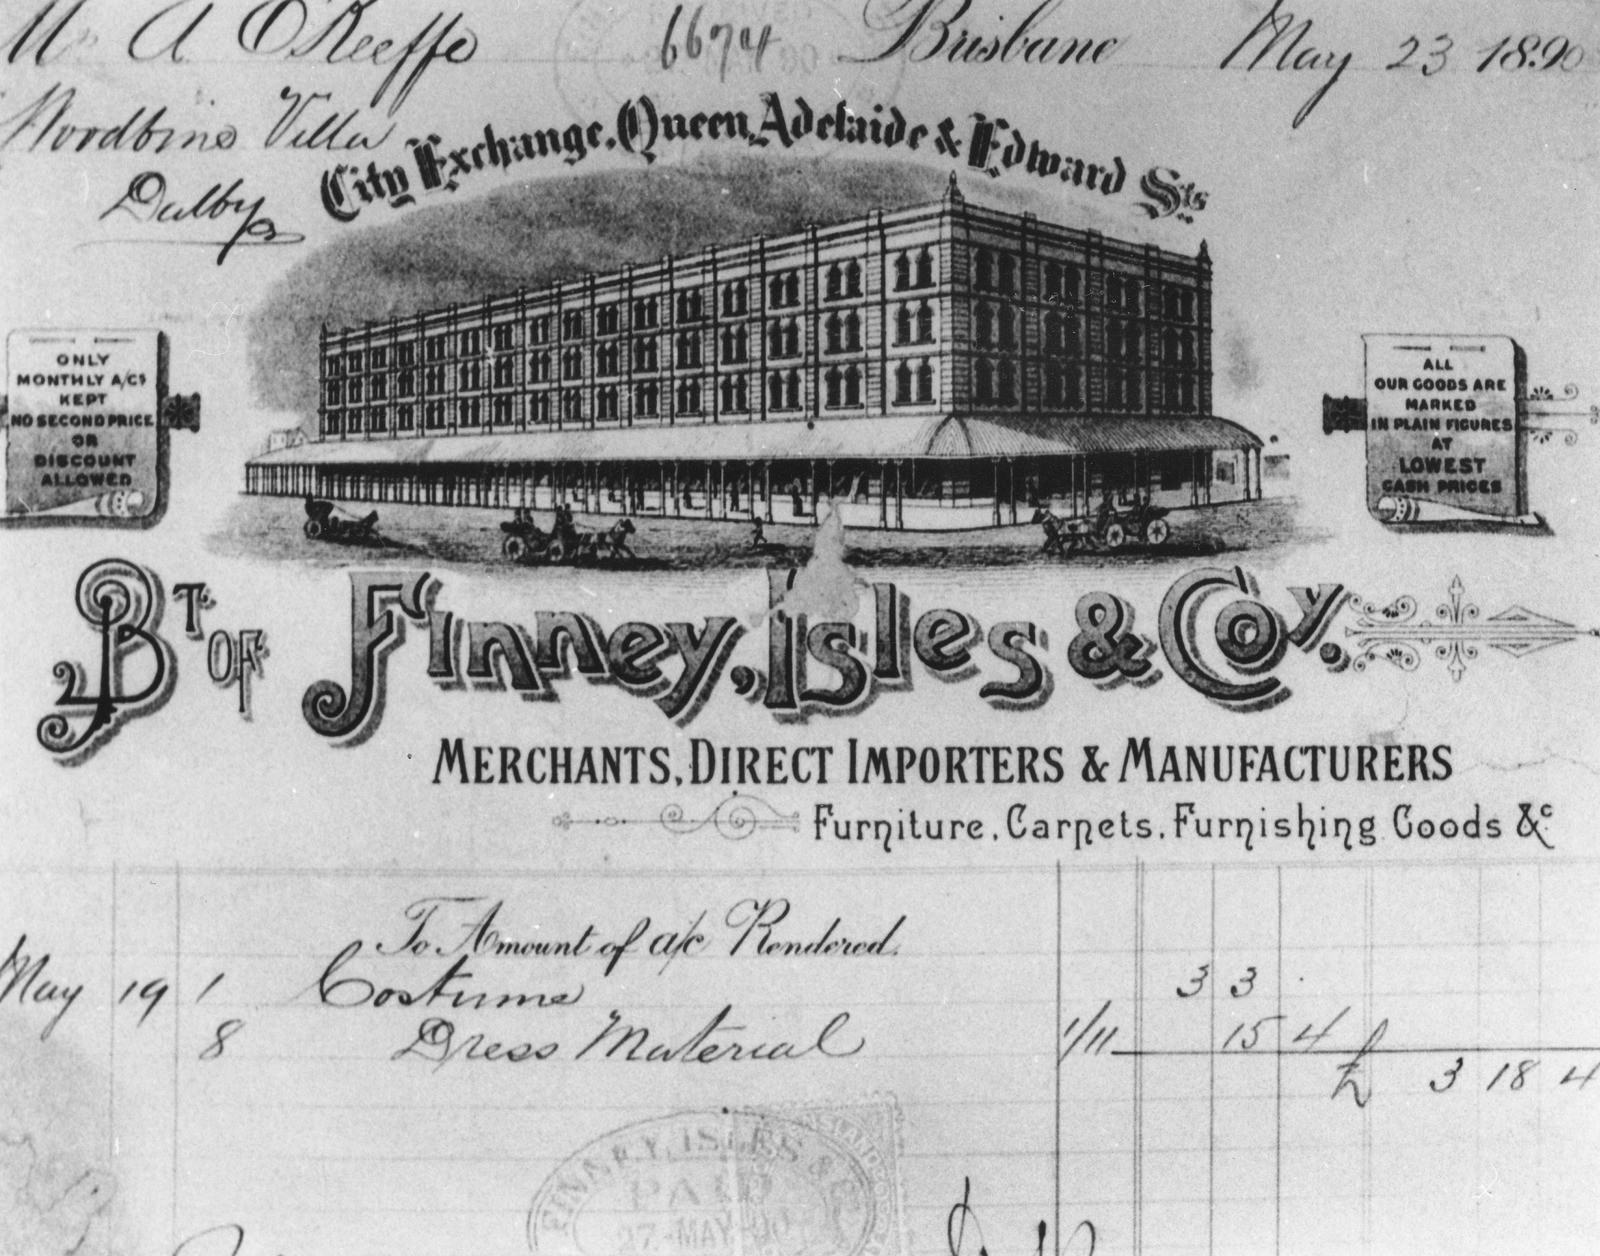 A O'Keeffe 6674 Brisbane May 23 1890
Woodbine Villa
Dalby
City Exchange, Queen, Adelaide & Edward Sts
ONLY
MONTHLY A/CS
KEPT
NO SECOND PRICE
OR
DISCOUNT
ALLOWED
ALL
OUR GOODS ARE
MARKED
IN PLAIN FIGURES
AT
LOWEST
CASH PRICES
BT OF Finney, Isles & Coy.
MERCHANTS, DIRECT IMPORTERS & MANUFACTURERS
Furniture, Carpets, Furnishing Goods &c
To Amount of a/c Rendered.
May 19 1 Costume 3 3
8 Dress Material 1/11 15 4
£ 3 18 4
FINNEY, ISLES & Co
PAID
27 MAY 90